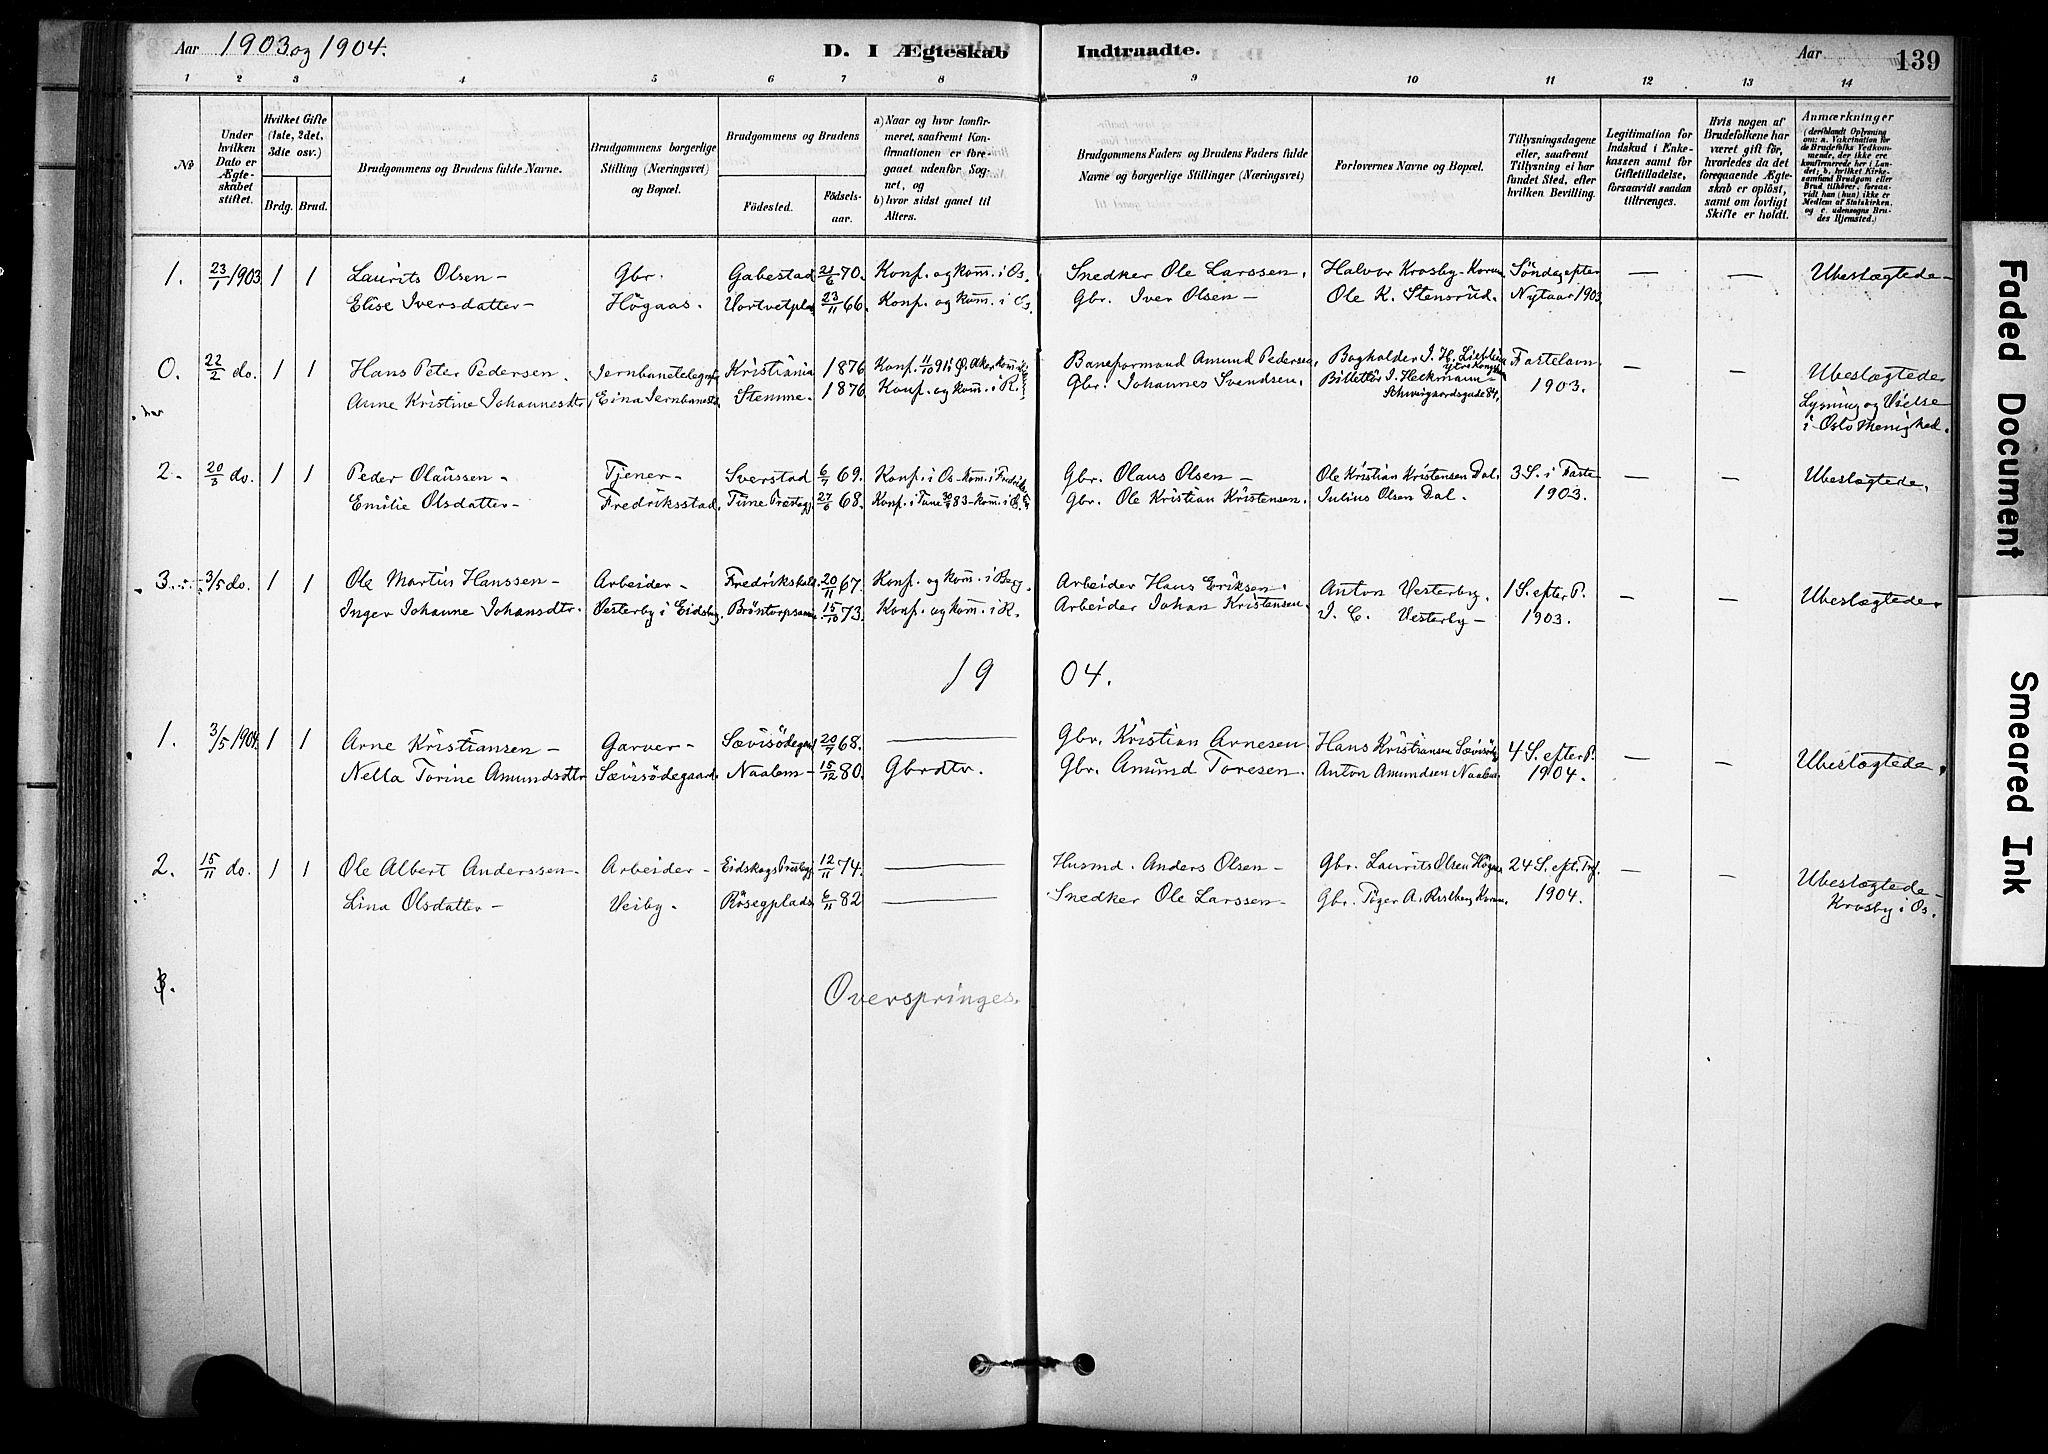 Aar 1903 og 1904.
D. I Ægteskab Indtraadte.
Aar 139
1 2 3 4 5 6 7 8 9 10 11 12 13 14
No
Under hvilken Dato er Ægteskabet stiftet.
Hvilket Gifte (1ste, 2det, 3die osv.)
Brdg. Brud.
Brudgommens og Brudens fulde Navne.
Brudgommens borgerlige Stilling (Næringsvei) og Bopæl.
Brudgommens og Brudens
Fødested. Fødselsaar.
a) Naar og hvor konfirmeret, saafremt Konfirmationen er foregaaet udenfor Sognet, og
b) hvor sidst gaaet til Alters.
Brudgommens Faders og Brudens Faders fulde Navne og borgerlige Stillinger (Næringsvei)
Forlovernes Navne og Bopæl.
Tillysningsdagene eller, saafremt Tillysning ei har fundet Sted, efter hvilken Bevilling.
Legitimation for Indskud i Enkekassen samt for Giftetilladelse, forsaavidt saadan tiltrænges.
Hvis nogen af Brudefolkene har været gift før, hvorledes da det foregaaende Ægteskab er opløst, samt om lovligt Skifte er holdt.
Anmærkninger
1. 23/1 1903 1 1 Laurits Olsen - Gbr. Gabestad 21/6 70. Konf. og kom. i Os. Snedker Ole Larssen. Halvor Krosby - Korum Søndag efter — — Ubeslægtede -
Elise Iversdatter - Högaas. Vortvetplads 23/11 66. Konf. og kom. i Os. Gbr. Iver Olsen - Ole K. Stensrud. Nytaar 1903.
0. 22/2 do. 1 1 Hans Peter Pedersen. Jernbanetelegrafist Kristiania 1876 Konf. 11/10 91 i Ø. Aker Baneformand Amund Pedersen, Bogholder J. H. Fastelavn — — Ubeslægtede
Anne Kristine Johannesdtr. Eina Jernbanest. Stemme - 1876 Konf. og kom. i R. Gbr. Johannes Svendsen. Billettör J. Heckmann - 1903.
Schweigaardsgade 84,
Lysning og Vielse
i Oslo Menighed.
2. 20/3 do. 1 1 Peder Olaussen - Tjener - Sverstad 6/7 69. Konf. i Os - kom. i Gbr. Olaus Olsen - Ole Kristian Kristensen Dal. 3 S. i Faste — — Ubeslægtede.
Emilie Olsdatter - Fredriksstad. Tune Præstegj. 27/6 68. Konf. i Tune 83 - kom. i Gbr. Ole Kristian Kristensen. Julius Olsen Dal. 1903.
3. 3/5 do. 1 1 Ole Martin Hanssen - Arbeider - Fredrikshald 20/11 67. Konf. og kom. i Berg. Arbeider Hans Eriksen. Anton Vesterby. 1 S. efter P. — — Ubeslægtede.
Inger Johanne Johansdtr. Vesterby i Eidsberg. 15/10 73. Konf. og kom. i R. Arbeider Johan Kristensen. J. C. Vesterby - 1903.
19 04.
1. 3/5 1904. 1 1 Arne Kristiansen - Garver - Sævisödegaard 20/7 68. — Gbr. Kristian Arnesen. Hans Kristiansen 4 S. efter P. — — Ubeslægtede.
Nella Torine Amundsdtr. Sævisödegaard. Naalem - 15/12 80. Gbrdtr. Gbr. Amund Toresen. Anton Amundsen Naalem 1904.
2. 15/11 do. 1 1 Ole Albert Anderssen - Arbeider - Eidskogs Prestegj. 12/11 74. — Husmd. Anders Olsen - Gbr. Laurits Olsen Högaas 24 S. eft. Tref. — — Ubeslægtede -
Lina Olsdatter - Veiby - Rösegplads. 6/11 82 — Snedker Ole Larssen - Gbr. 1904. Krosby i Os.
3. Overspringes.
Faded Document
Smeared Ink